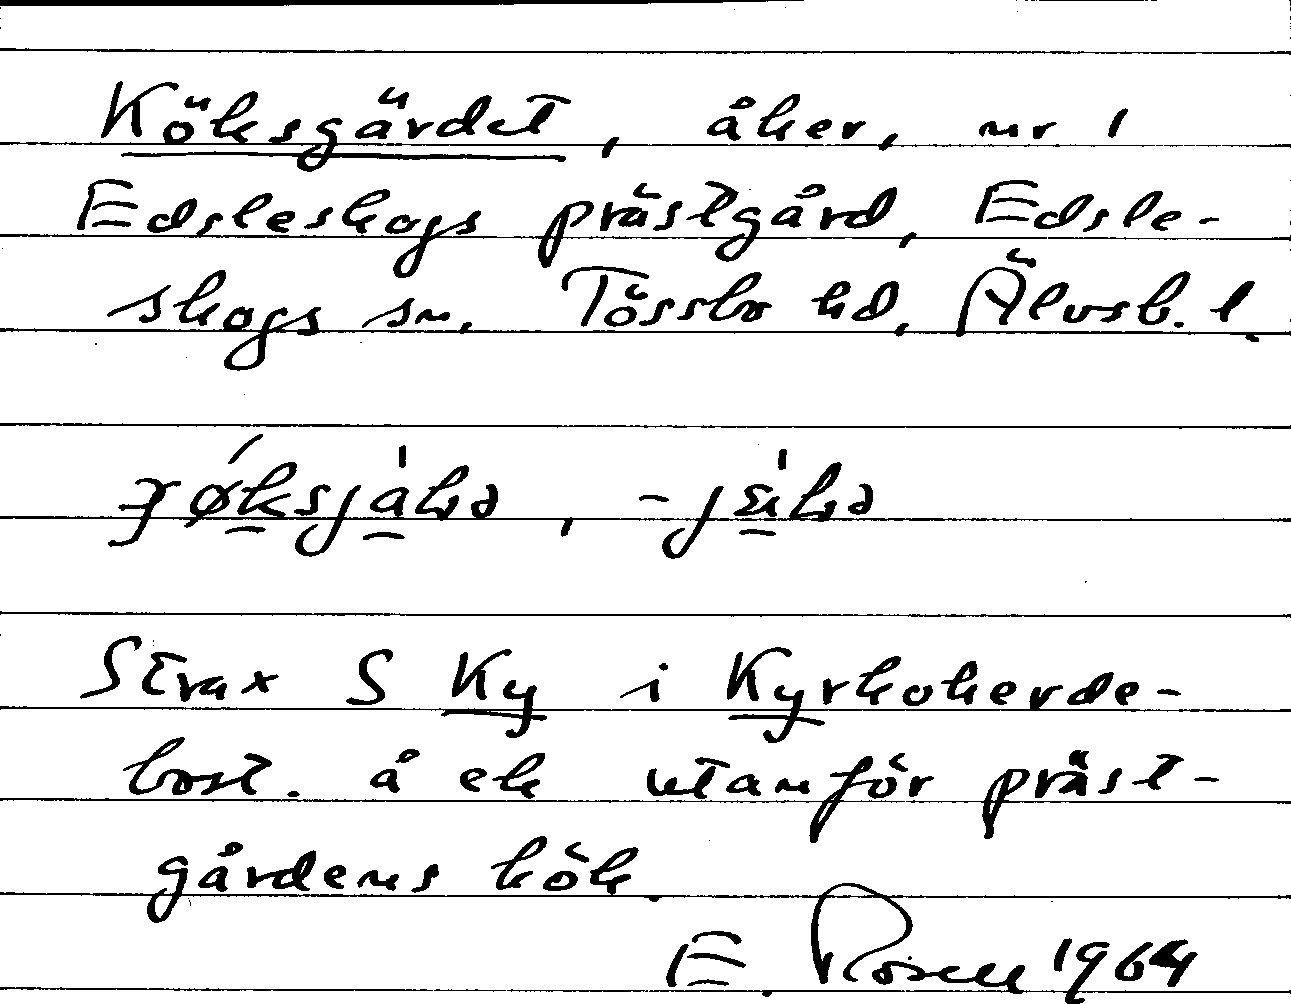 Köksgärdet, åker, nr 1
Edsleskogs prästgård, Edsle-
skogs sn, Tössbo hd, Älvsb. l.
Strax S Ky i Kyrkoherde-
bost. å ek utanför präst-
gårdens kök.
E. Rosell 1964